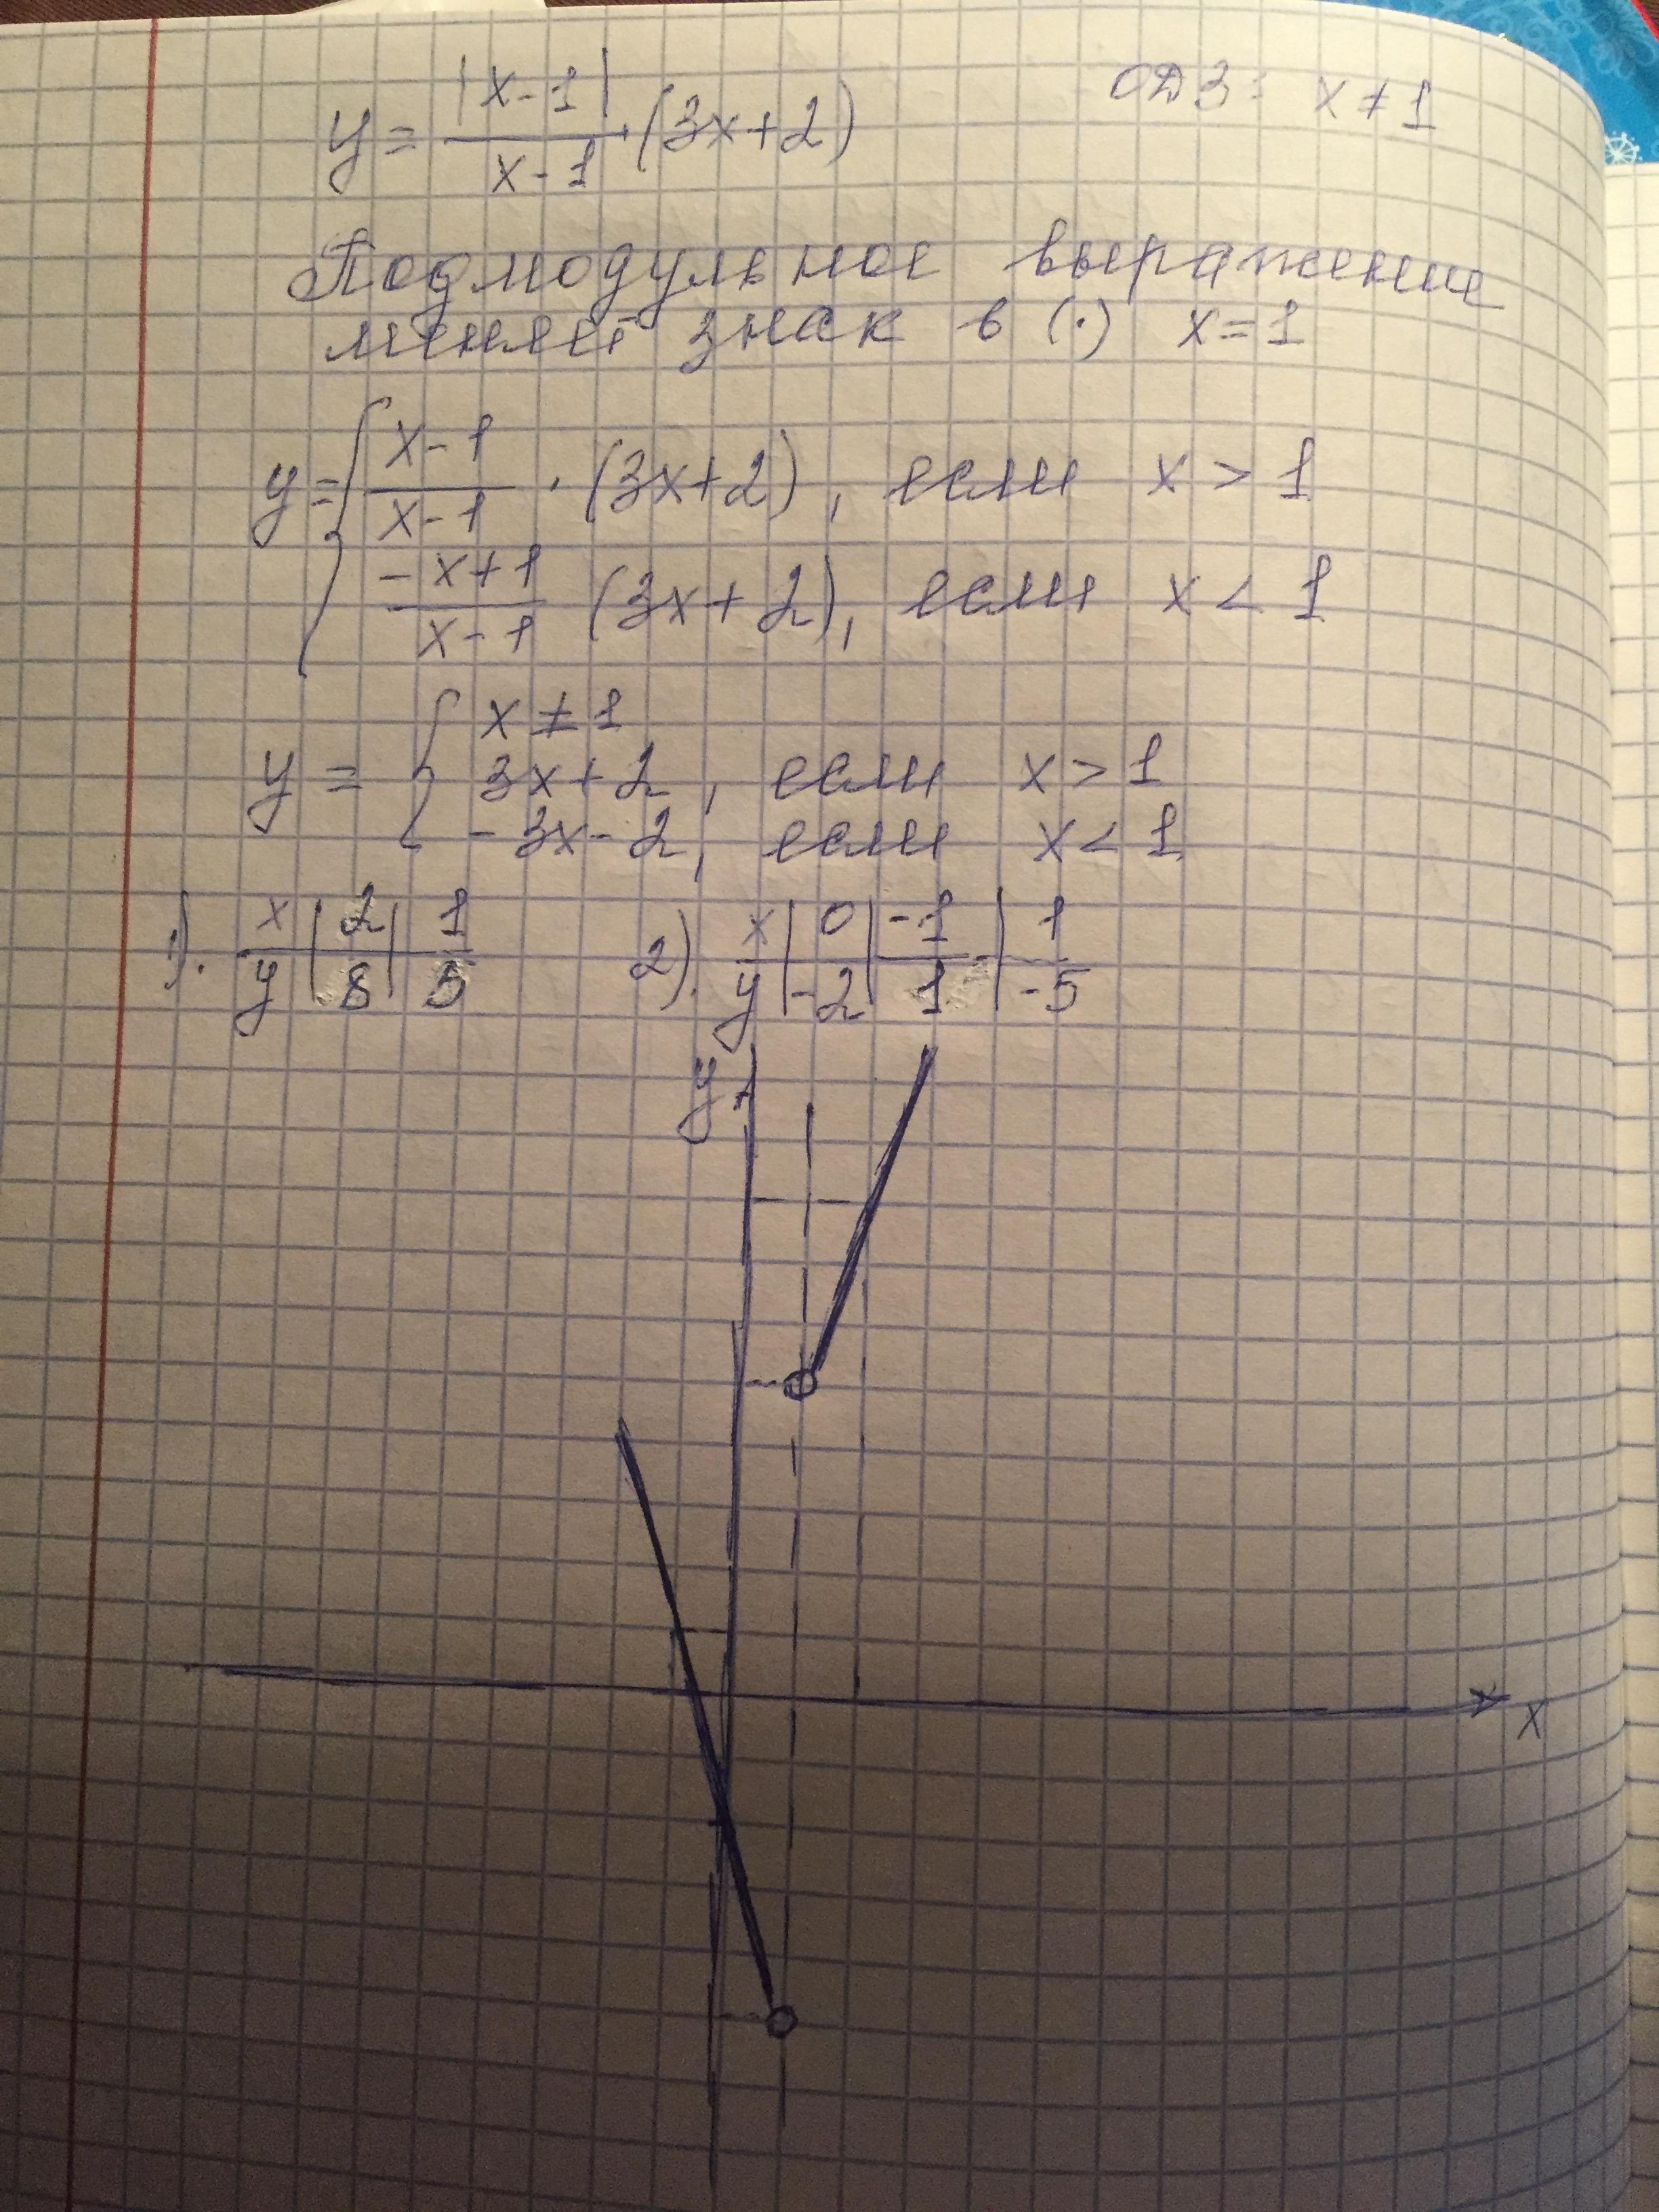 y = |x-1| / x-1 · (3x+2) ОДЗ: x ≠ 1
Подмодульное выражение
меняет знак в (·) x=1
y= { x-1 / x-1 · (3x+2), если x > 1
-x+1 / x-1 (3x+2), если x < 1
y = { x ≠ 1
3x+2, если x > 1
-3x-2, если x < 1
1). x | 2 | 1
y | 8 | 5
2). x | 0 | -1 | 1
y | -2 | 1 | -5
y
x